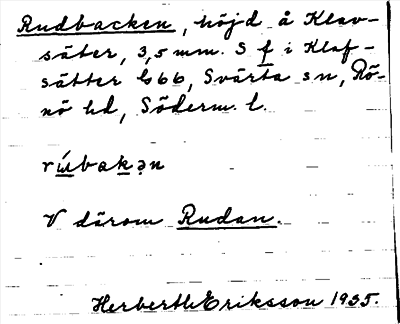 Rudbacken, höjd å Klav-
säter, 3,5 mm. S f i Klaf-
sätter bl 66, Svärta sn, Rö-
nö hd, Söderm. l.
rúbakən
V därom Rudan.
Herberth Eriksson 1935.